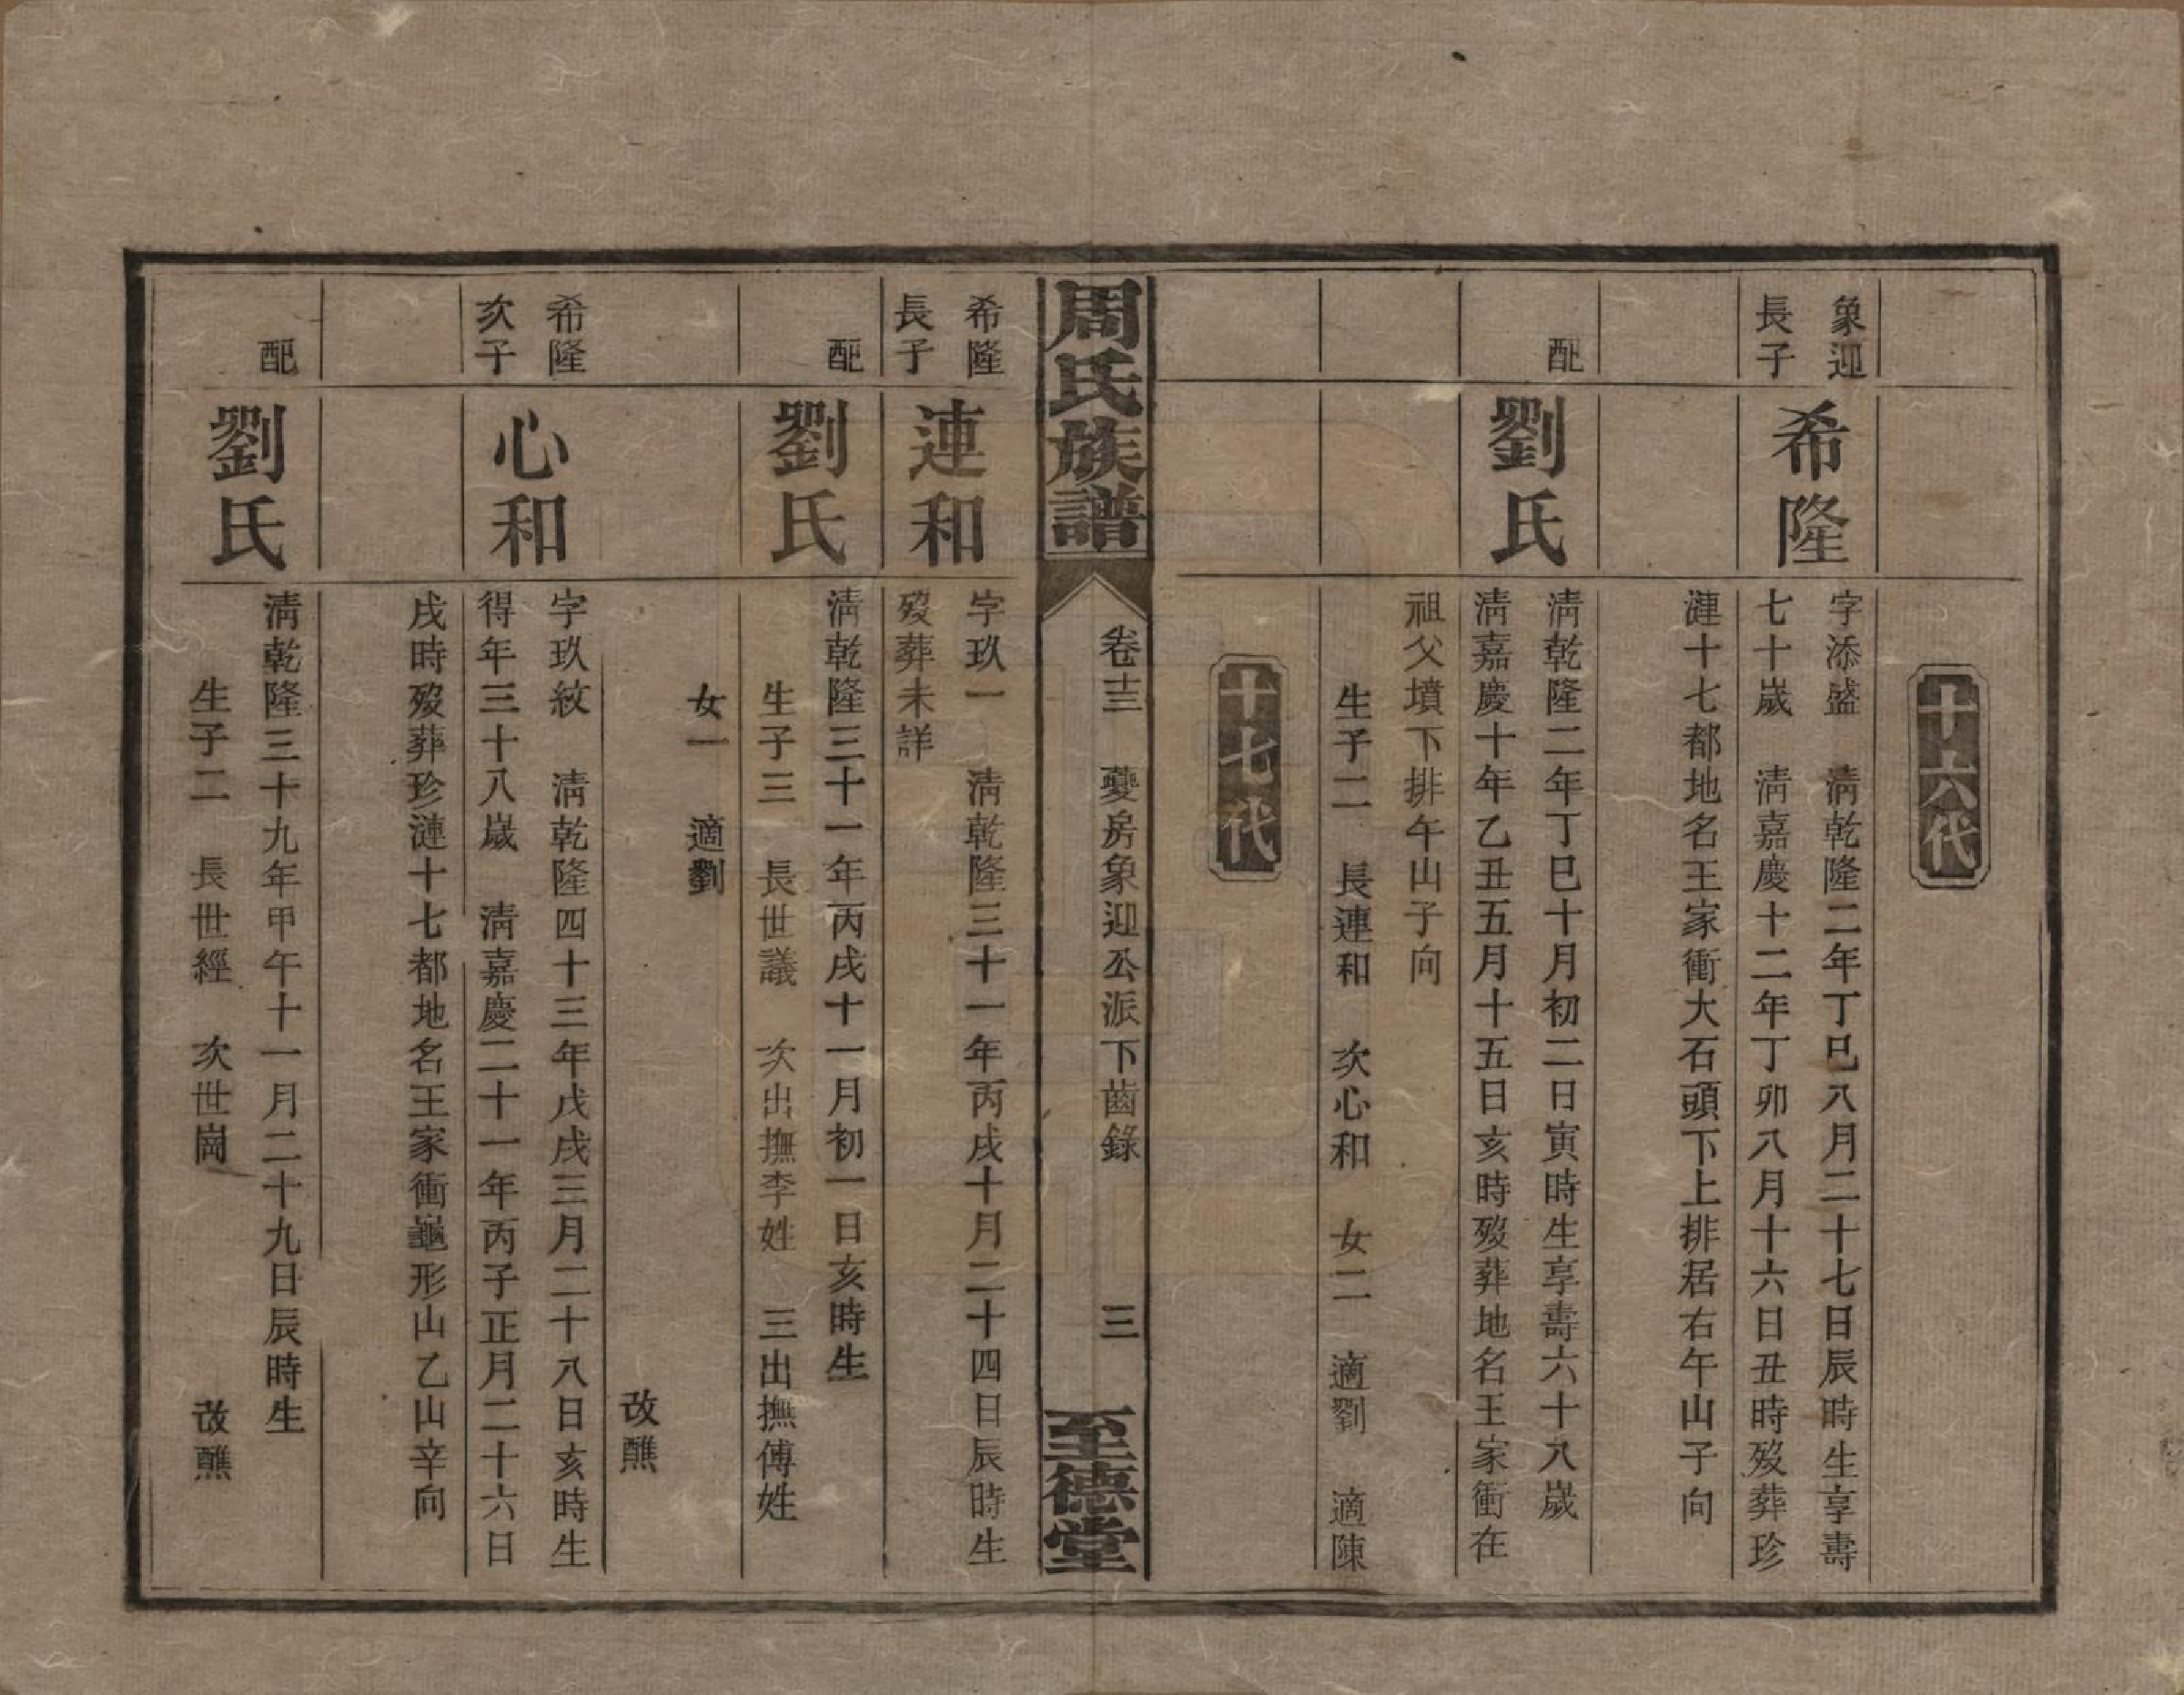 十六代
象迎
長子
希隆
字添盛　淸乾隆二年丁巳八月二十七日辰時生享壽
七十歲　淸嘉慶十二年丁卯八月十六日丑時歿葬珍
漣十七都地名王家衝大石頭下上排居右午山子向
配
劉氏
淸乾隆二年丁巳十月初二日寅時生享壽六十八歲
淸嘉慶十年乙丑五月十五日亥時歿葬地名王家衝在
祖父墳下排午山子向
生子二　長連和　次心和　女二　適劉　適陳
十七代
周氏族譜
卷十三　夔房象迎公派下齒錄　三
至德堂
希隆
長子
連和
字玖一　淸乾隆三十一年丙戌十月二十四日辰時生
歿葬未詳
配
劉氏
淸乾隆三十一年丙戌十一月初一日亥時生
生子三　長世議　次出撫李姓　三出撫傅姓
女一　適劉
改醮
希隆
次子
心和
字玖紋　淸乾隆四十三年戊戌三月二十八日亥時生
得年三十八歲　淸嘉慶二十一年丙子正月二十六日
戌時歿葬珍漣十七都地名王家衝龜形山乙山辛向
配
劉氏
淸乾隆三十九年甲午十一月二十九日辰時生
生子二　長世經　次世崗　改醮